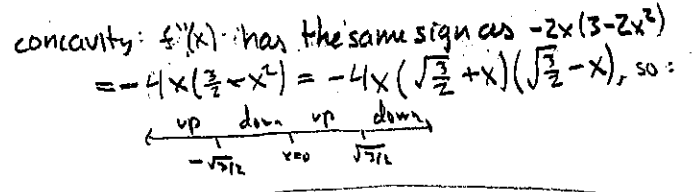 concavity: f''(x) has the same sign as -2x(3-2x²)
= -4x(3/2 - x²) = -4x(√3/2 + x)(√3/2 - x), so:
up down up down
-√3/2 x=0 √3/2